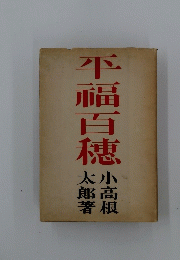 平福百穂
小高根
太郎著